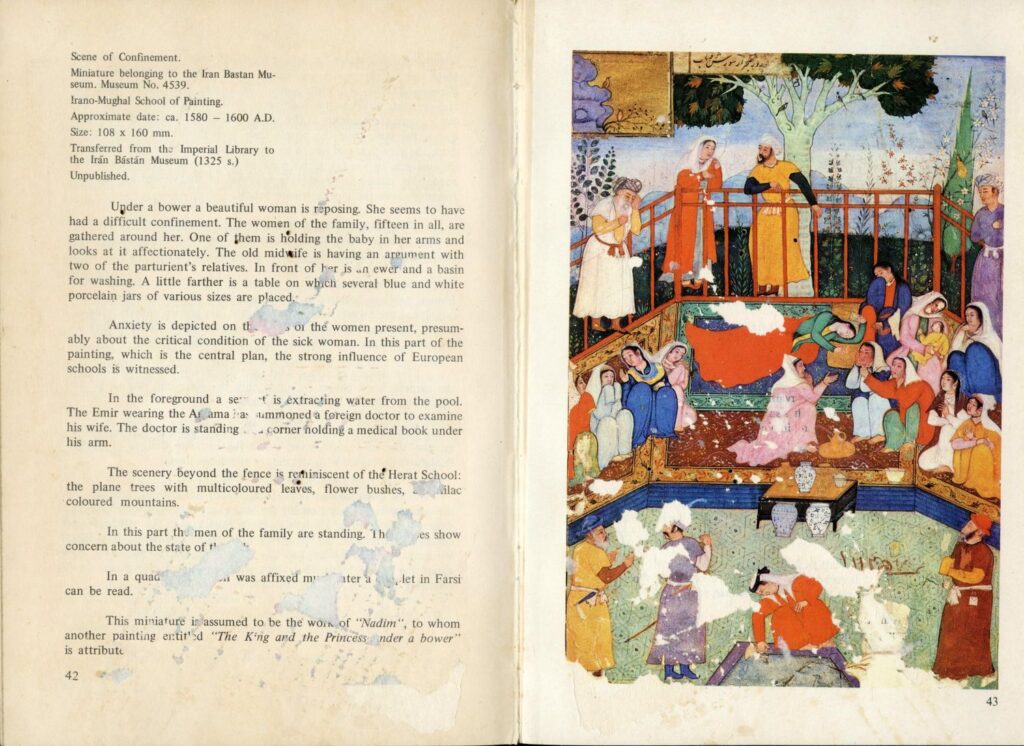 Scene of Confinement.
Miniature belonging to the Iran Bastan Mu-
seum. Museum No. 4539.
Irano-Mughal School of Painting.
Approximate date: ca. 1580 – 1600 A.D.
Size: 108 x 160 mm.
Transferred from the Imperial Library to
the Irán Bástán Museum (1325 s.)
Unpublished.
Under a bower a beautiful woman is reposing. She seems to have
had a difficult confinement. The women of the family, fifteen in all, are
gathered around her. One of them is holding the baby in her arms and
looks at it affectionately. The old midwife is having an argument with
two of the parturient's relatives. In front of her is an ewer and a basin
for washing. A little farther is a table on which several blue and white
porcelain jars of various sizes are placed.
Anxiety is depicted on of the women present, presum-
ably about the critical condition of the sick woman. In this part of the
painting, which is the central plan, the strong influence of European
schools is witnessed.
In the foreground a is extracting water from the pool.
The Emir wearing the has summoned a foreign doctor to examine
his wife. The doctor is standing corner holding a medical book under
his arm.
The scenery beyond the fence is reminiscent of the Herat School:
the plane trees with multicoloured leaves, flower bushes, lilac
coloured mountains.
In this part the men of the family are standing. show
concern about the state of
In a was affixed later a in Farsi
can be read.
This miniature is assumed to be the work of "Nadim", to whom
another painting entitled "The King and the Princess under a bower"
is
42
43